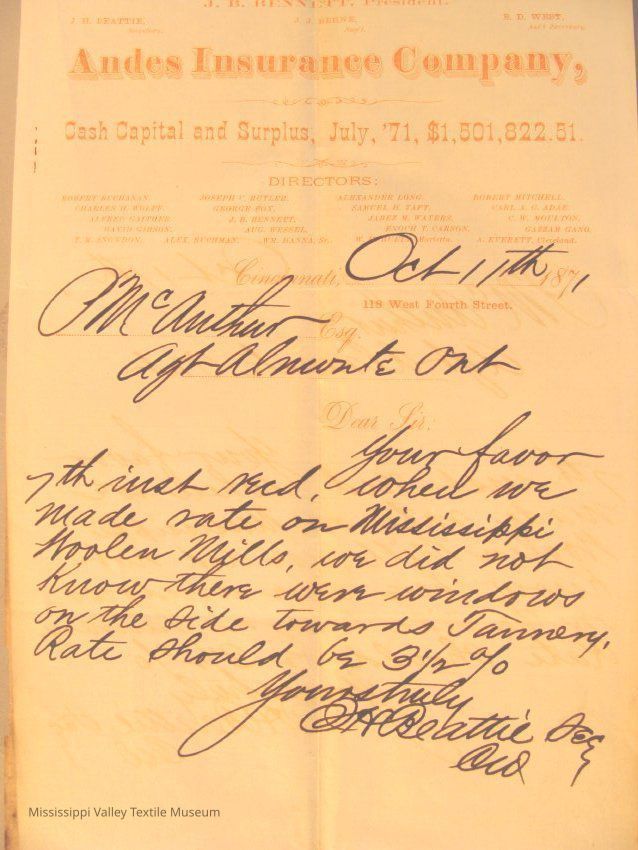 J. B. BENNETT, President.
J. H. BEATTIE, J. J. BERNE, B. D. WEST,
Secretary. Sup't. Ass't Secretary.
Andes Insurance Company,
Cash Capital and Surplus, July, '71, $1,501,822.51.
DIRECTORS:
ROBERT BUCHANAN. JOSEPH C. BUTLER. ALEXANDER LONG. ROBERT MITCHELL.
CHARLES H. WOLFF. GEORGE FOX. SAMUEL H. TAFT. CARL A. G. ADAE.
ALFRED GAITHER. J. B. BENNETT. JABEZ M. WATERS. C. W. MOULTON.
DAVID GIBSON. AUG. WESSEL. ENOCH T. CARSON. GAZZAM GANO.
T. R. SNOWDON. ALEX. BUCHMAN. WM. HANNA, Sr. Marietta. A. EVERETT, Cleveland.
Cincinnati, Oct 11th 1871
118 West Fourth Street.
McArthur Esq.
Agt Almonte Ont
Dear Sir:
Your favor
7th inst recd, when we
made rate on Mississippi
Woolen Mills, we did not
Know there were windows
on the side towards Tannery.
Rate should be 3½ %
Yours truly
JHBeattie Secy
Mississippi Valley Textile Museum